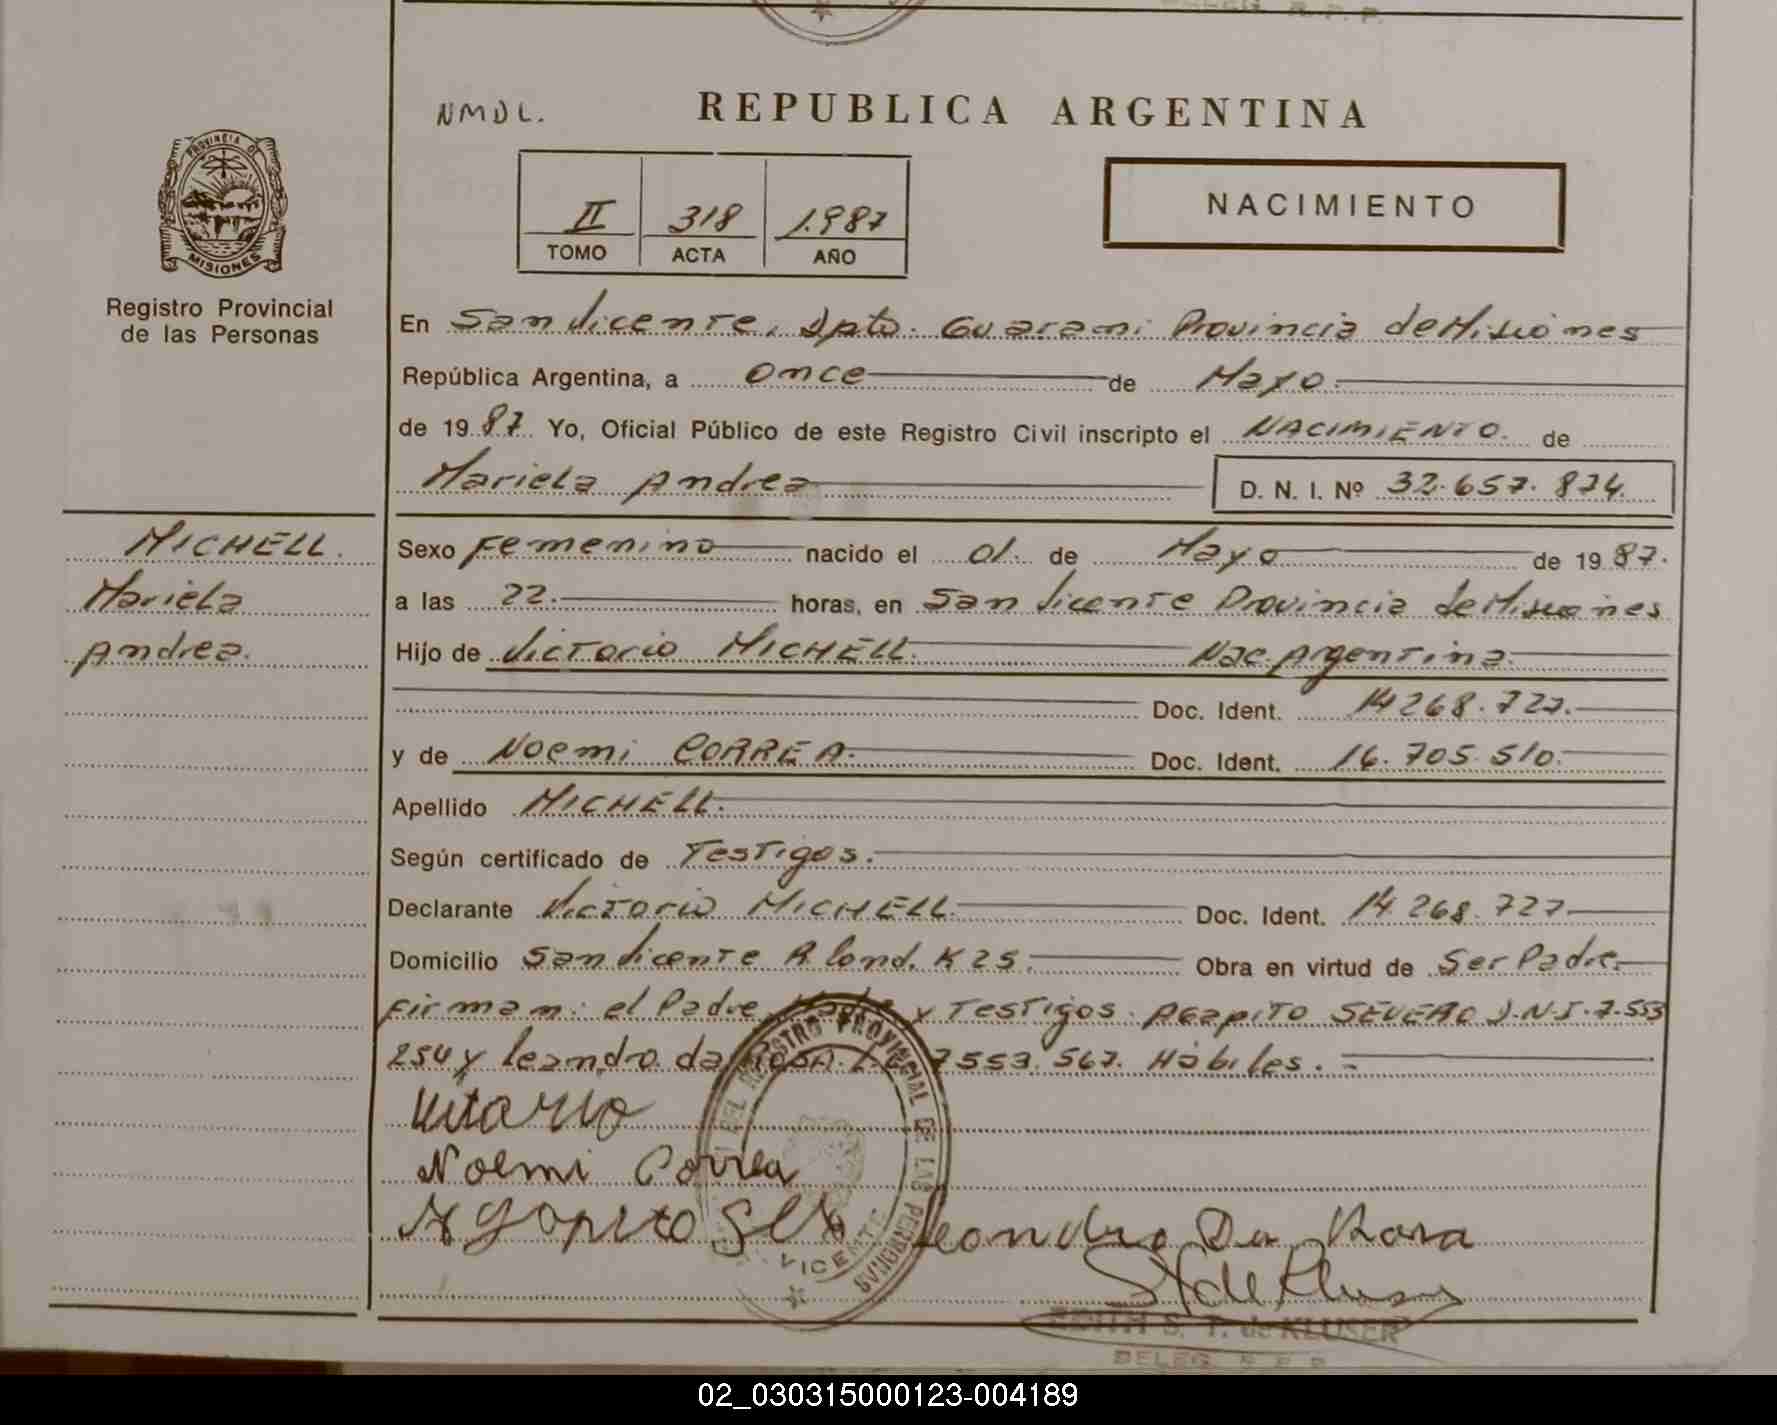 NMDL.
REPUBLICA ARGENTINA
PROVINCIA DE
MISIONES
Registro Provincial
de las Personas
II 318 1.987
TOMO ACTA AÑO
NACIMIENTO
En San Vicente, Dpto. Guarani Provincia de Misiones
República Argentina, a once de Mayo.
de 1987. Yo, Oficial Público de este Registro Civil inscripto el NACIMIENTO. de
Mariela Andrea D. N. I. Nº 32.657.874.
MICHELL.
Mariela
Andrea.
Sexo Femenino nacido el 01. de Mayo de 1987.
a las 22. horas, en San Vicente Provincia de Misiones
Hijo de Victorio MICHELL. Nac. Argentina.
Doc. Ident. 14268.727.
y de Noemi CORREA. Doc. Ident. 16.705.510.
Apellido MICHELL.
Según certificado de Testigos.
Declarante Victorio MICHELL. Doc. Ident. 14.268.727
Domicilio San Vicente R. Cond. K 25. Obra en virtud de Ser Padre.
Firman: el Padre, Madre y Testigos. Agapito SEVERO D.N.I. 7.553
254 y Leandro da Rosa 7553.567. Hábiles.=
Vitorio
Noemi Correa
Agapito Leandro Da Rosa
DEL REGISTRO PROVINCIAL DE LAS PERSONAS
VICENTE
EDITH S. T. de KLUSER
DELEG. R. P. P.
02_030315000123-004189